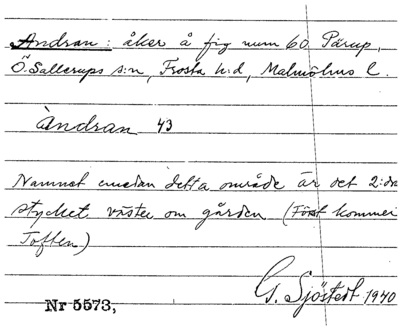 Andran: åker å fig num 60 Pärup,
Ö. Sallerups s:n, Frosta h:d, Malmöhus l.
Àndran 43
Namnet emedan detta område är det 2:dra
stycket väster om gården (Först kommer
Toften)
G. Sjöstedt 1940
Nr 5573,